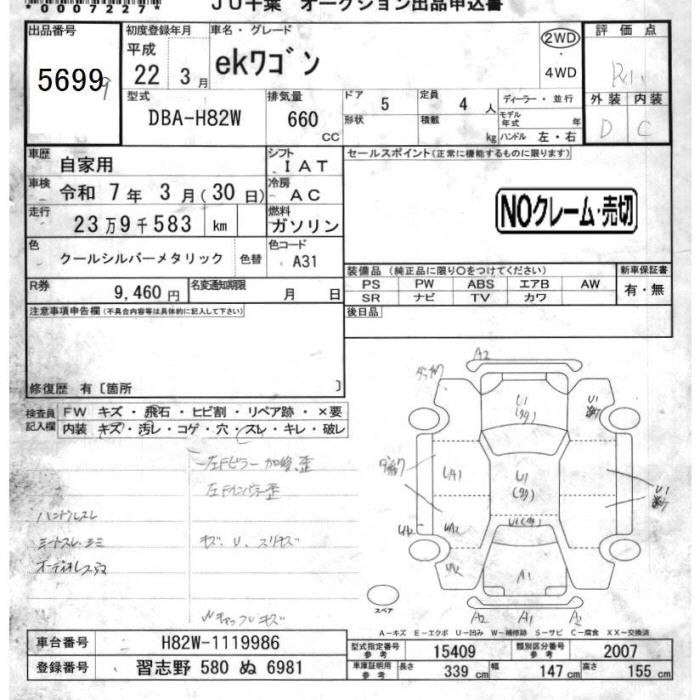 *0007227*
JU千葉 オークション出品申込書
出品番号 初度登録年月 車名・グレード 評価点
5699 平成 22 3月 ekワゴン 2WD・4WD
外装 内装
D C
型式 排気量 ドア 5 定員 4人 ディーラー・並行
DBA-H82W 660 CC 形状 積載 kg モデル年式 年
ハンドル 左・右
車歴 自家用 シフト IAT セールスポイント(正常に機能するものに限ります)
車検 令和 7年 3月(30日) 冷房 AC
NOクレーム・売切
走行 23万9千583 km 燃料 ガソリン
色 クールシルバーメタリック 色替 色コード A31
装備品(純正品に限り○をつけてください) 新車保証書
PS PW ABS エアB AW 有・無
SR ナビ TV カワ
R券 9,460円 名変通知期限 月 日
注意事項申告欄(不具合内容等は具体的に記入して下さい) 後日品
修復歴 有〔箇所 〕
検査員記入欄 FW キズ・飛石・ヒビ割・リペア跡・×要
内装 キズ・汚レ・コゲ・穴・スレ・キレ・破レ
ハンドルスレ
シートスレ・シミ
キズ、U、スリキズ
A2
U1
U1
UA1
U1
U1
UA2
A1
A2 A1 A2
スペア
A-キズ E-エクボ U-凹み W-補修跡 S-サビ C-腐食 XX-交換済
車台番号 H82W-1119986 型式指定番号 参考 15409 類別区分番号 参考 2007
登録番号 習志野 580 ぬ 6981 車庫証明用 参考 長さ 339 cm 幅 147 cm 高さ 155 cm